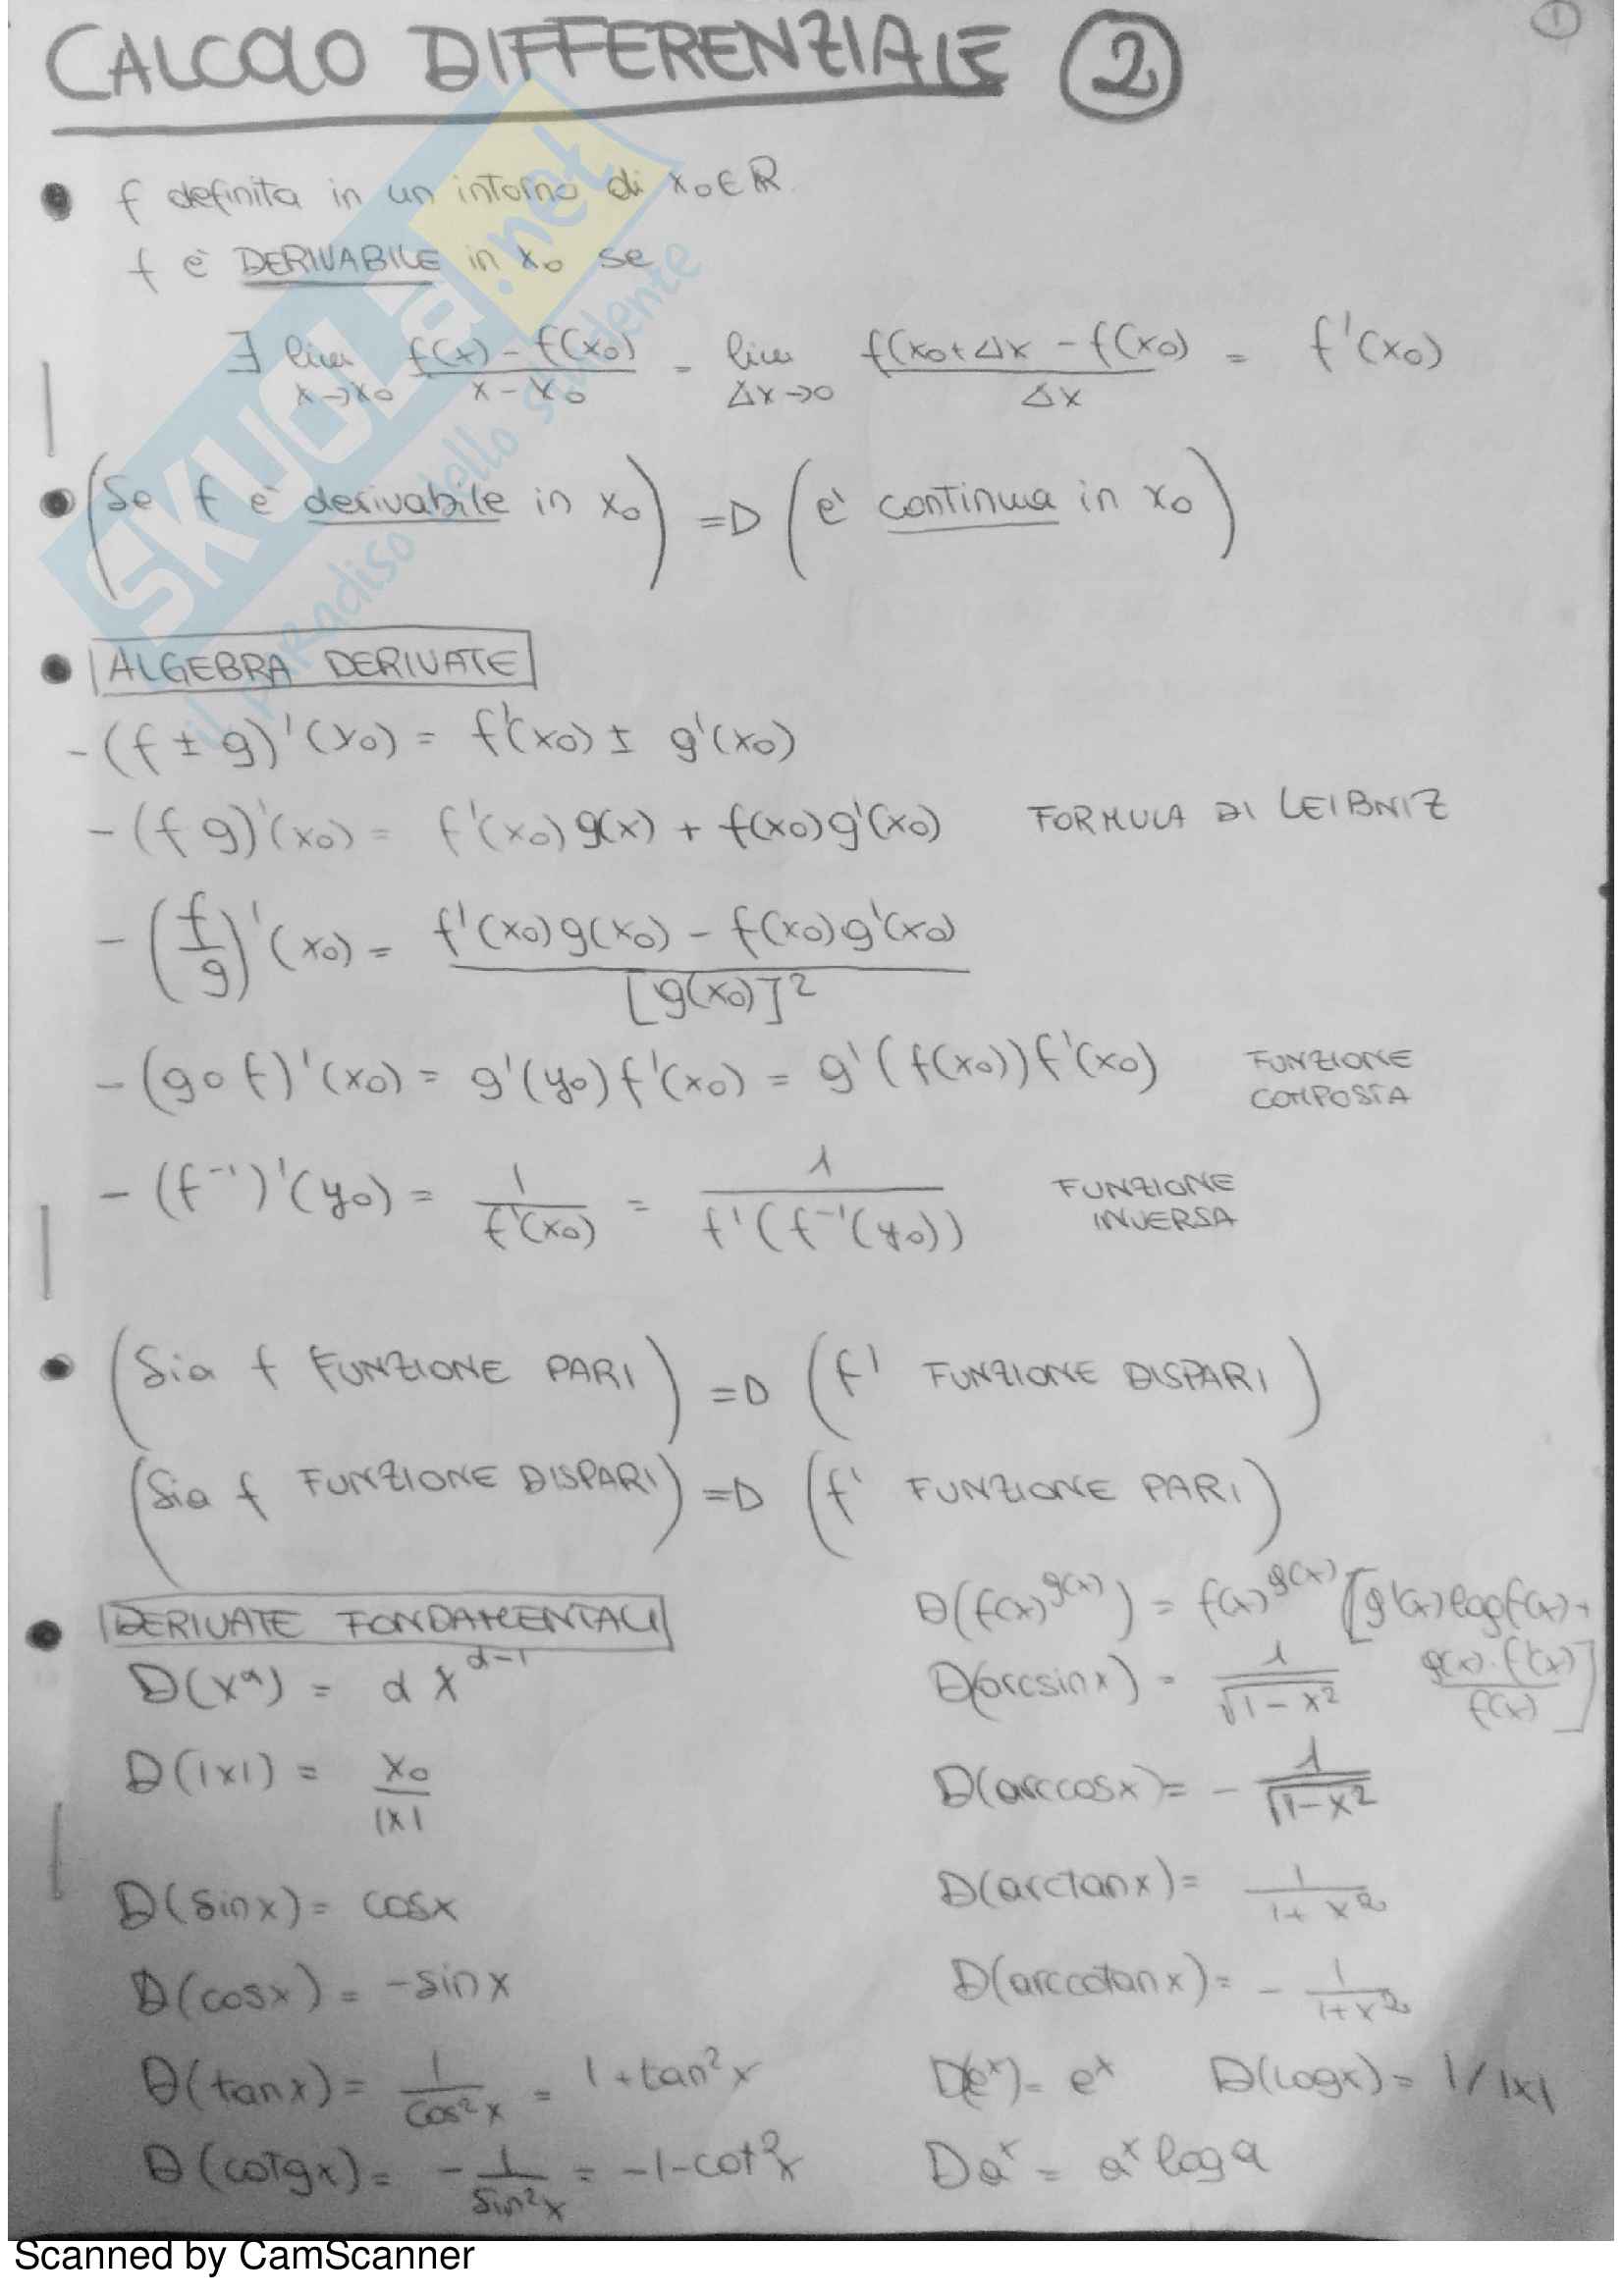 CALCOLO DIFFERENZIALE 2
1
f definita in un intorno di x₀∈ℝ
f è DERIVABILE in x₀ se
∃ lim x→x₀ (f(x) - f(x₀))/(x - x₀) = lim Δx→0 (f(x₀+Δx - f(x₀))/Δx = f'(x₀)
(Se f è derivabile in x₀) => (è continua in x₀)
ALGEBRA DERIVATE
- (f ± g)'(x₀) = f'(x₀) ± g'(x₀)
- (f g)'(x₀) = f'(x₀) g(x) + f(x₀) g'(x₀) FORMULA DI LEIBNIZ
- (f/g)'(x₀) = (f'(x₀) g(x₀) - f(x₀) g'(x₀))/[g(x₀)]²
- (g∘f)'(x₀) = g'(y₀) f'(x₀) = g'(f(x₀)) f'(x₀) FUNZIONE COMPOSTA
- (f⁻¹)'(y₀) = 1/f'(x₀) = 1/f'(f⁻¹(y₀)) FUNZIONE INVERSA
(Sia f FUNZIONE PARI) => (f' FUNZIONE DISPARI)
(Sia f FUNZIONE DISPARI) => (f' FUNZIONE PARI)
DERIVATE FONDAMENTALI
D(x^α) = α x^(α-1)
D(|x|) = x₀/|x|
D(sinx) = cosx
D(cosx) = -sinx
D(tanx) = 1/cos²x = 1+tan²x
D(cotgx) = -1/sin²x = -1-cot²x
D(f(x)^g(x)) = f(x)^g(x) [g'(x) log f(x) + g(x)·f'(x)/f(x)]
D(arcsinx) = 1/√(1-x²)
D(arccosx) = -1/√(1-x²)
D(arctanx) = 1/(1+x²)
D(arccotanx) = -1/(1+x²)
D(e^x) = e^x D(logx) = 1/|x|
D a^x = a^x log a
SKUOLA.net
il paradiso dello studente
Scanned by CamScanner